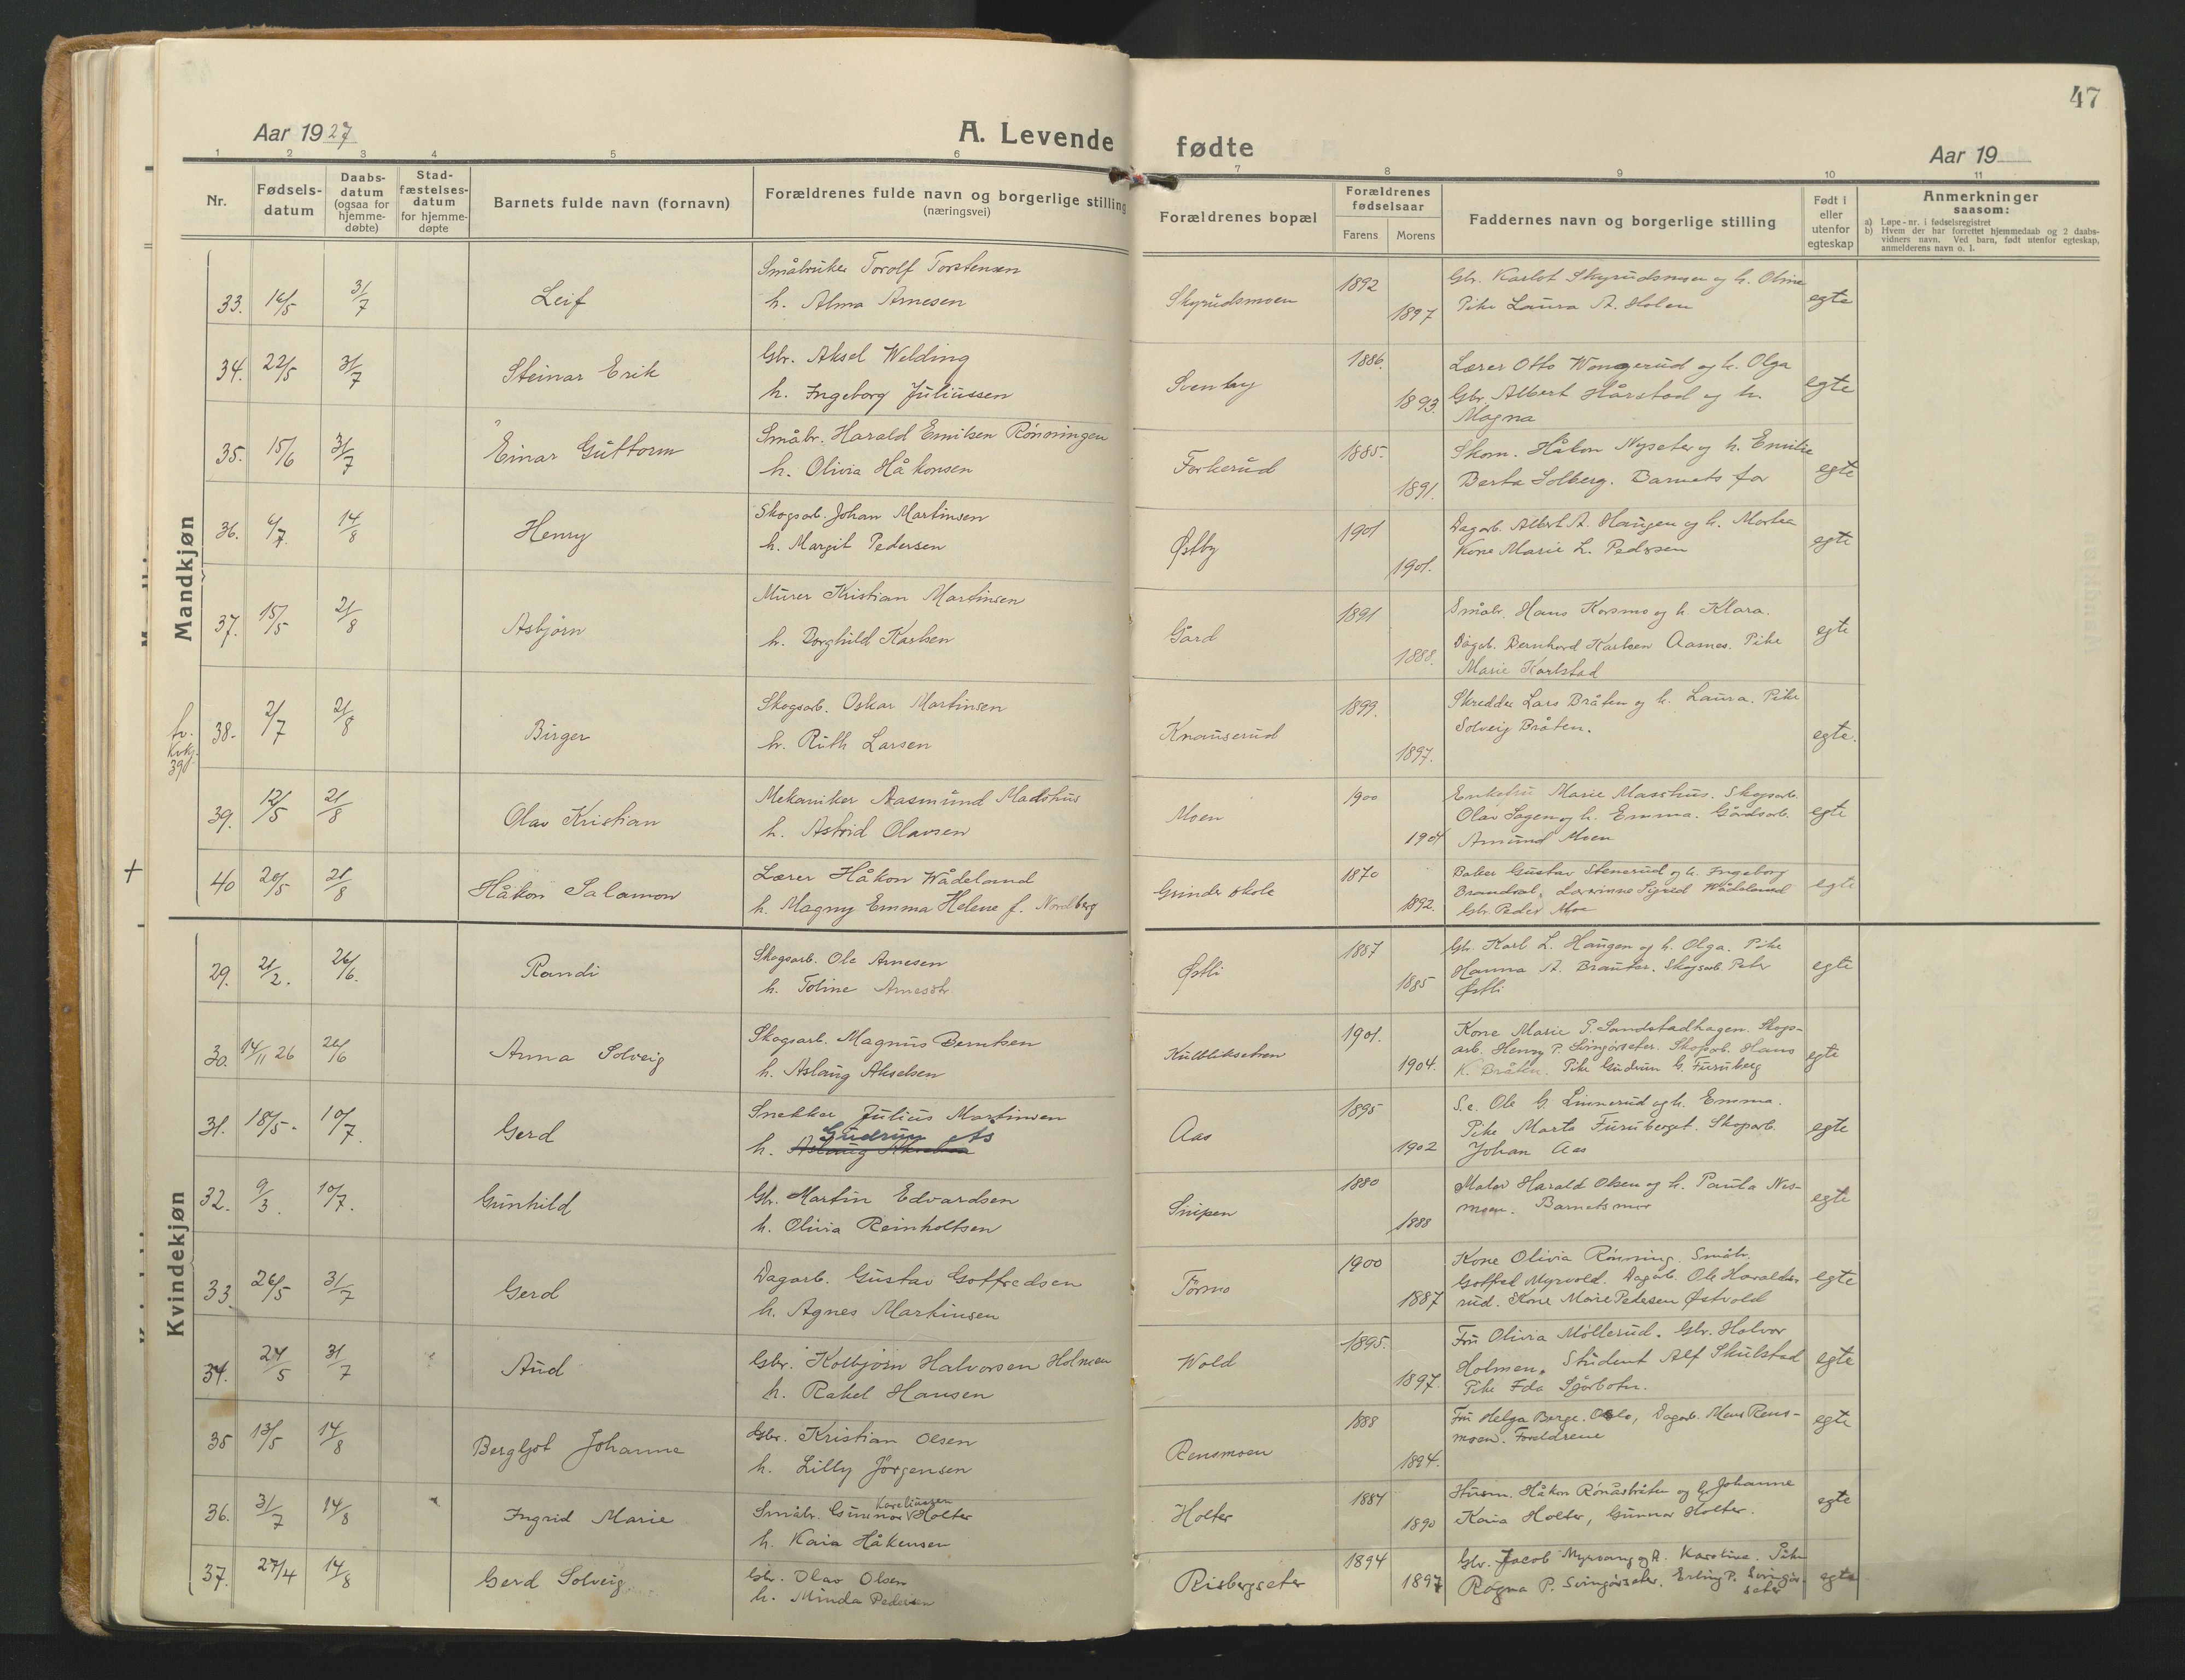 47
Aar 1927
A. Levende fødte
Aar 19
1 2 3 4 5 6 7 8 9 10 11
Nr.
Fødsels-
datum
Daabs-
datum
(ogsaa for
hjemme-
døbte)
Stad-
fæstelses-
datum
for hjemme-
døpte
Barnets fulde navn (fornavn)
Forældrenes fulde navn og borgerlige stilling
(næringsvei)
Forældrenes bopæl
Forældrenes
fødselsaar
Farens Morens
Faddernes navn og borgerlige stilling
Født i
eller
utenfor
egteskap
Anmerkninger
saasom:
a) Løpe-nr. i fødselsregistret
b) Hvem der har forrettet hjemmedaab og 2 daabs-
vidners navn. Ved barn, født utenfor egteskap,
anmelderens navn o. l.
Mandkjøn
33. 16/5 31/7 Leif
Småbruker Torolf Torstensen
h. Alma Arnesen
Skyrudsmoen 1892 1897
Gbr. Karlot Skyrudsmoen og h. Oline
Pike Laura A. Holen
egte
34. 22/5 31/7 Steinar Erik
Gbr. Aksel Welding
h. Ingeborg Juliussen
Svenby 1886. 1893.
Lærer Otto Wongerud og h. Olga
Gbr. Albert Hårstad og h.
Magna
egte
35. 15/6 31/7 Einar Guttorm
Småbr. Harald Emilsen Rönningen
h. Olivia Håkonsen
Forkerud 1885. 1891.
Skom. Håkon Nyseter og h. Emilie
Berta Solberg. Barnets far
egte
36. 6/7. 14/8 Henry
Skogsarb. Johan Martinsen
h. Margit Pedersen
Østby 1901 1901.
Dagarb. Albert A. Haugen og h. Martea
Kone Marie L. Pedersen
egte
37. 15/5 21/8 Asbjörn
Murer Kristian Martinsen
h. Borghild Karlsen
Gård 1891 1888.
Småbr. Hans Korsmo og h. Klara.
Dagarb. Bernhard Karlsen Aasnes. Pike
Marie Karlstad
egte
38. 2/7 21/8 Birger
Skogsarb. Oskar Martinsen
h. Ruth Larsen
Knauserud 1899. 1897.
Skredder Lars Bråten og h. Laura. Pike
Solveig Bråten.
egte.
39. 12/5 21/8 Olav Kristian
Mekaniker Aasmund Madshus
h. Astrid Olavsen
Moen 1900 1904
Enkefru Marie Masshus. Skogsarb.
Olav Sagen og h. Emma. Gårdsarb.
Amund Moen
egte
40 20/5 21/8 Håkon Salamon
Lærer Håkon Wådeland
h. Magny Emma Helene f. Nordberg
Grinder skole 1870 1892.
Baker Gustav Stenerud og h. Ingeborg
Brandval. Lærerinne Sigrid Wådeland
Gbr. Peder Moe
egte
Kvindekjøn
29. 21/2. 26/6. Randi
Skogsarb. Ole Arnesen
h. Toline
Østli 1887 1885
Gbr. Karl L. Haugen og h. Olga. Pike
Hanna A. Skogsarb. Peter
Østli
egte
30. 14/11 26 26/6 Anna Solveig
Skogsarb. Magnus Berntsen
h. Aslaug Akselsen
1901. 1904.
Kone Marie P. Sandstadhagen. Skogs-
arb. Henry P. Svingörseter. Skogsarb. Hans
K. Bråten. Pike Gudrun G. Furuberg
egte
31. 18/5. 10/7. Gerd
Snekker Julius Martinsen
Gudrun As
h.
Aas 1895 1902
S.e. Ole G. Linnerud og h. Emma.
Pike Marta Furuberget. Skogarb.
Johan Aas
egte
32. 9/3. 10/7. Gunhild
Gbr. Martin Edvardsen
h. Olivia Reinholtsen
Snipen 1880 1888
Maler Harald Olsen og h. Paula Nes-
moen. Barnets mor
egte
33. 26/5 31/7 Gerd
Dagarb. Gustav Gotfredsen
h. Agnes Martinsen
Förmo 1900 1887
Kone Olivia Rönning. Småbr.
Gotfred Myrvold. Dagarb. Ole Haralds-
rud. Kone Marie Pedersen Østvold
egte
34. 24/5 31/7 Aud
Gbr. Kolbjörn Halvorsen Holmen
h. Rakel Hansen
Wold 1895. 1897.
Fru Olivia Möllerud. Gbr. Halvor
Holmen. Student Alf Skulstad
Pike Ida Sjörbotn.
egte
35 13/5 14/8 Bergljot Johanne
Gbr. Kristian Olsen
h. Lilly Jörgensen
Rensmoen 1888 1894.
Fru Helga Berge. Oslo, Dagarb. Mens Rens-
moen. Foreldrene
egte
36. 31/7 14/8 Ingrid Marie
Kareliussen
Småbr. Gunnar Holter
h. Kaia Håkensen
Holter 1884 1890
Husm. Håkon Rönåsbråten og h. Johanne
Kaia Holter, Gunnar Holter.
egte
37. 27/4 14/8 Gerd Solveig
Gbr. Olav Olsen
h. Minda Pedersen
Risbergseter 1894 1897
Gbr. Jacob Myrvang og h. Karoline. Pike
Ragna P. Svingörseter. Erling P. Svingör-
seter
egte